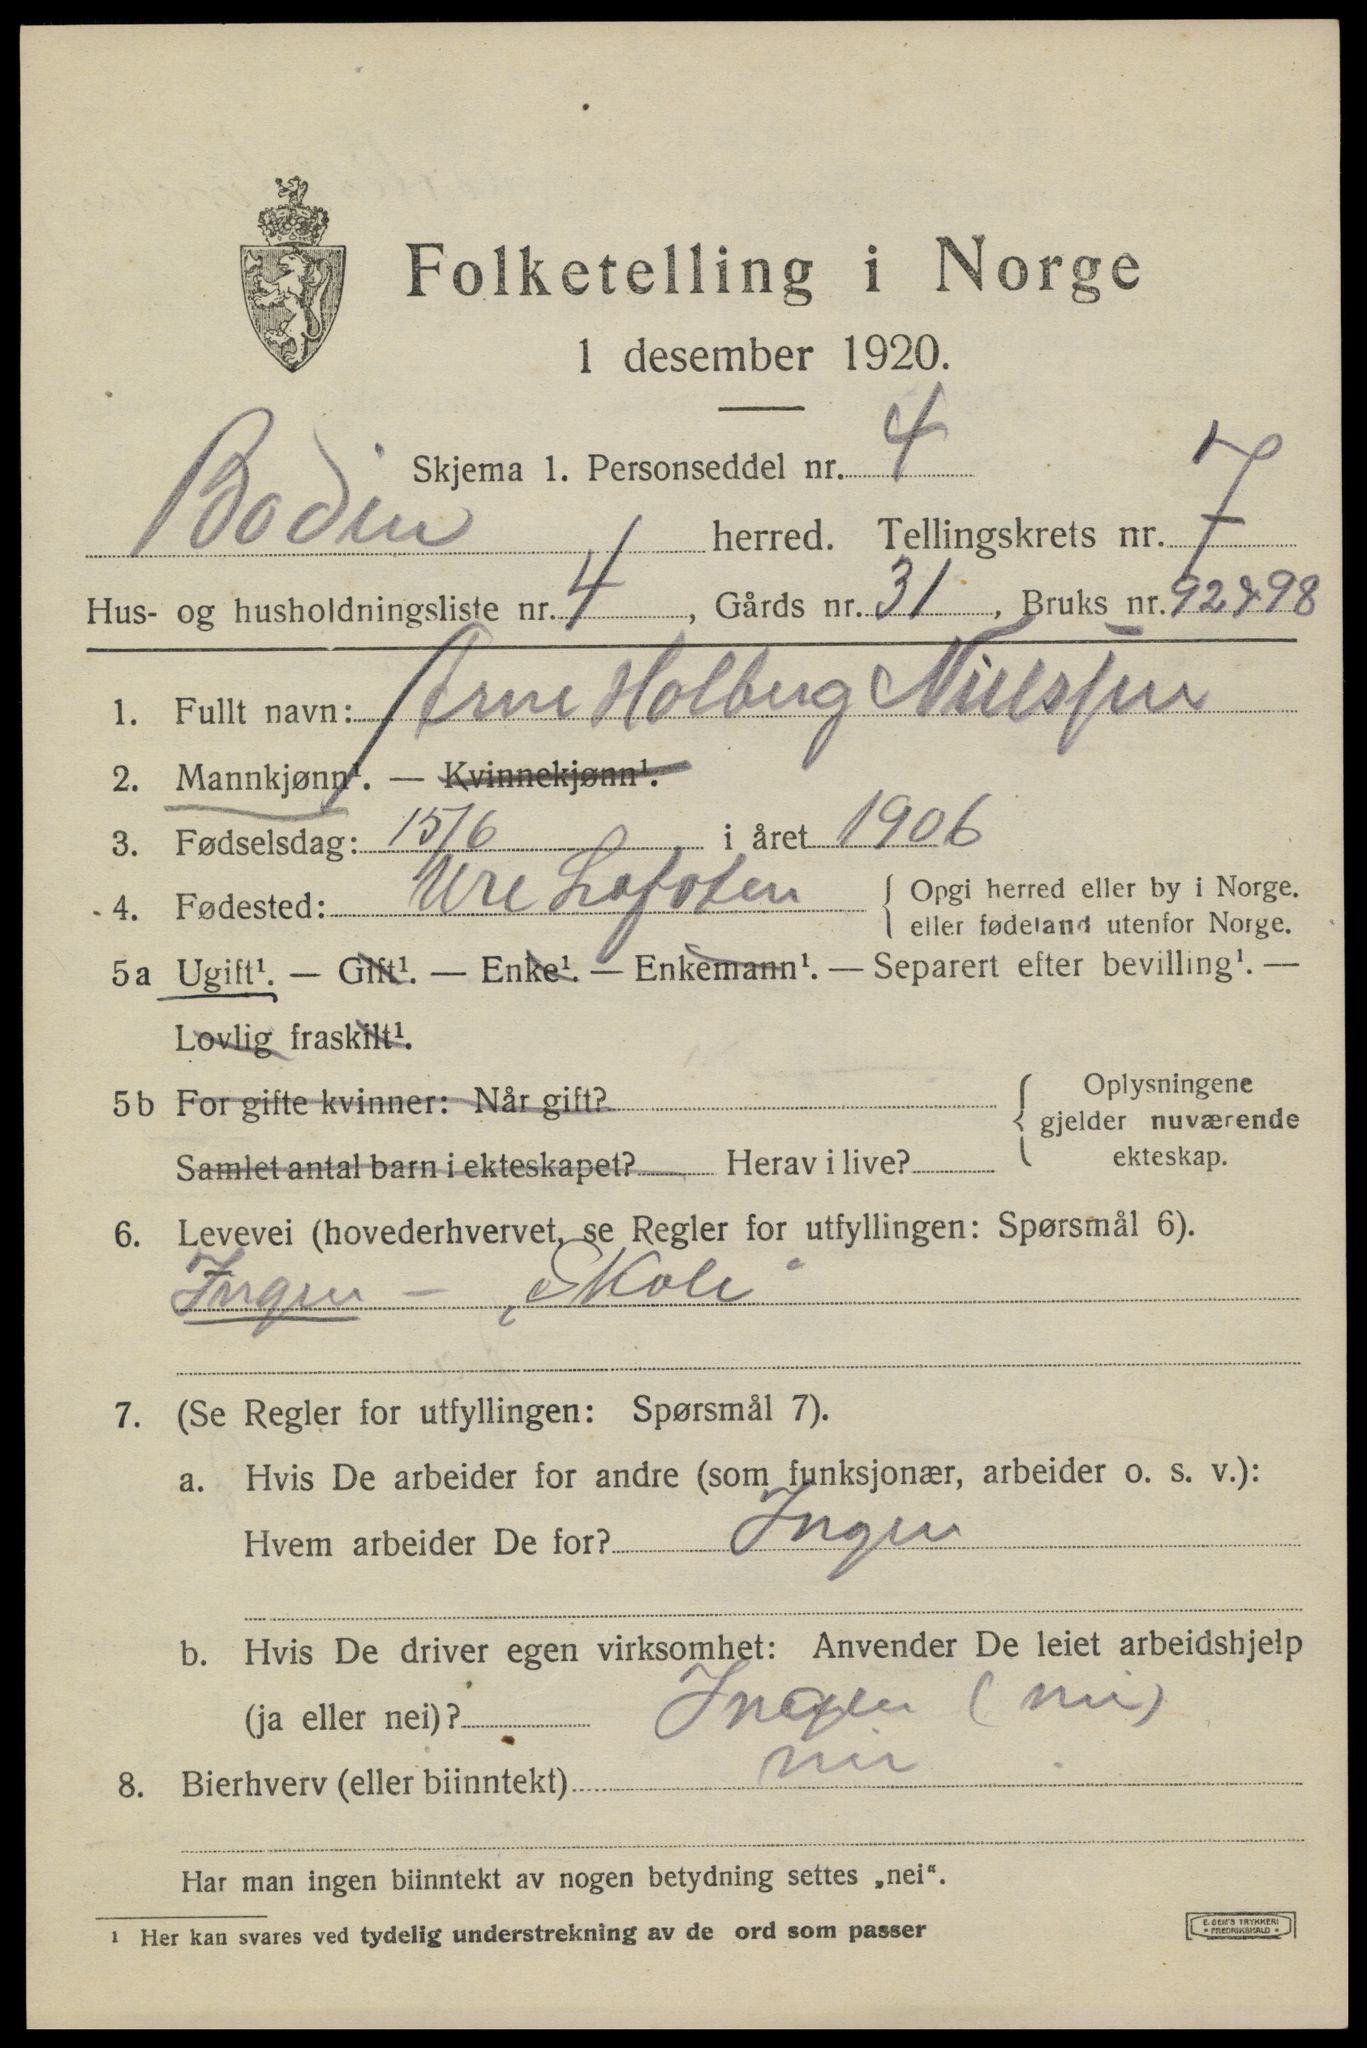 Folketelling i Norge
1 desember 1920.
Skjema 1. Personseddel nr. 4
Bodin herred. Tellingskrets nr. 7
Hus- og husholdningsliste nr. 4, Gårds nr. 31, Bruks nr. 92 & 98
1. Fullt navn: Arne Holberg Nielssen
2. Mannkjønn¹. — Kvinnekjønn¹.
3. Fødselsdag: 15/6 i året 1906
4. Fødested: Ure Lofoten { Opgi herred eller by i Norge.
eller fødeland utenfor Norge.
5a Ugift¹. — Gift¹. — Enke¹. — Enkemann¹. — Separert efter bevilling¹. —
Lovlig fraskilt¹.
5b For gifte kvinner: Når gift? { Oplysningene
gjelder nuværende
Samlet antal barn i ekteskapet? Herav i live? ekteskap.
6. Levevei (hovederhvervet, se Regler for utfyllingen: Spørsmål 6).
Ingen — „Skole"
7. (Se Regler for utfyllingen: Spørsmål 7).
a. Hvis De arbeider for andre (som funksjonær, arbeider o. s. v.):
Hvem arbeider De for? Ingen
b. Hvis De driver egen virksomhet: Anvender De leiet arbeidshjelp
(ja eller nei)? Ingen (nei)
8. Bierhverv (eller biinntekt) nei
Har man ingen biinntekt av nogen betydning settes „nei“.
¹ Her kan svares ved tydelig understrekning av de ord som passer
E. SEM'S TRYKKERI
• FREDRIKSHALD •